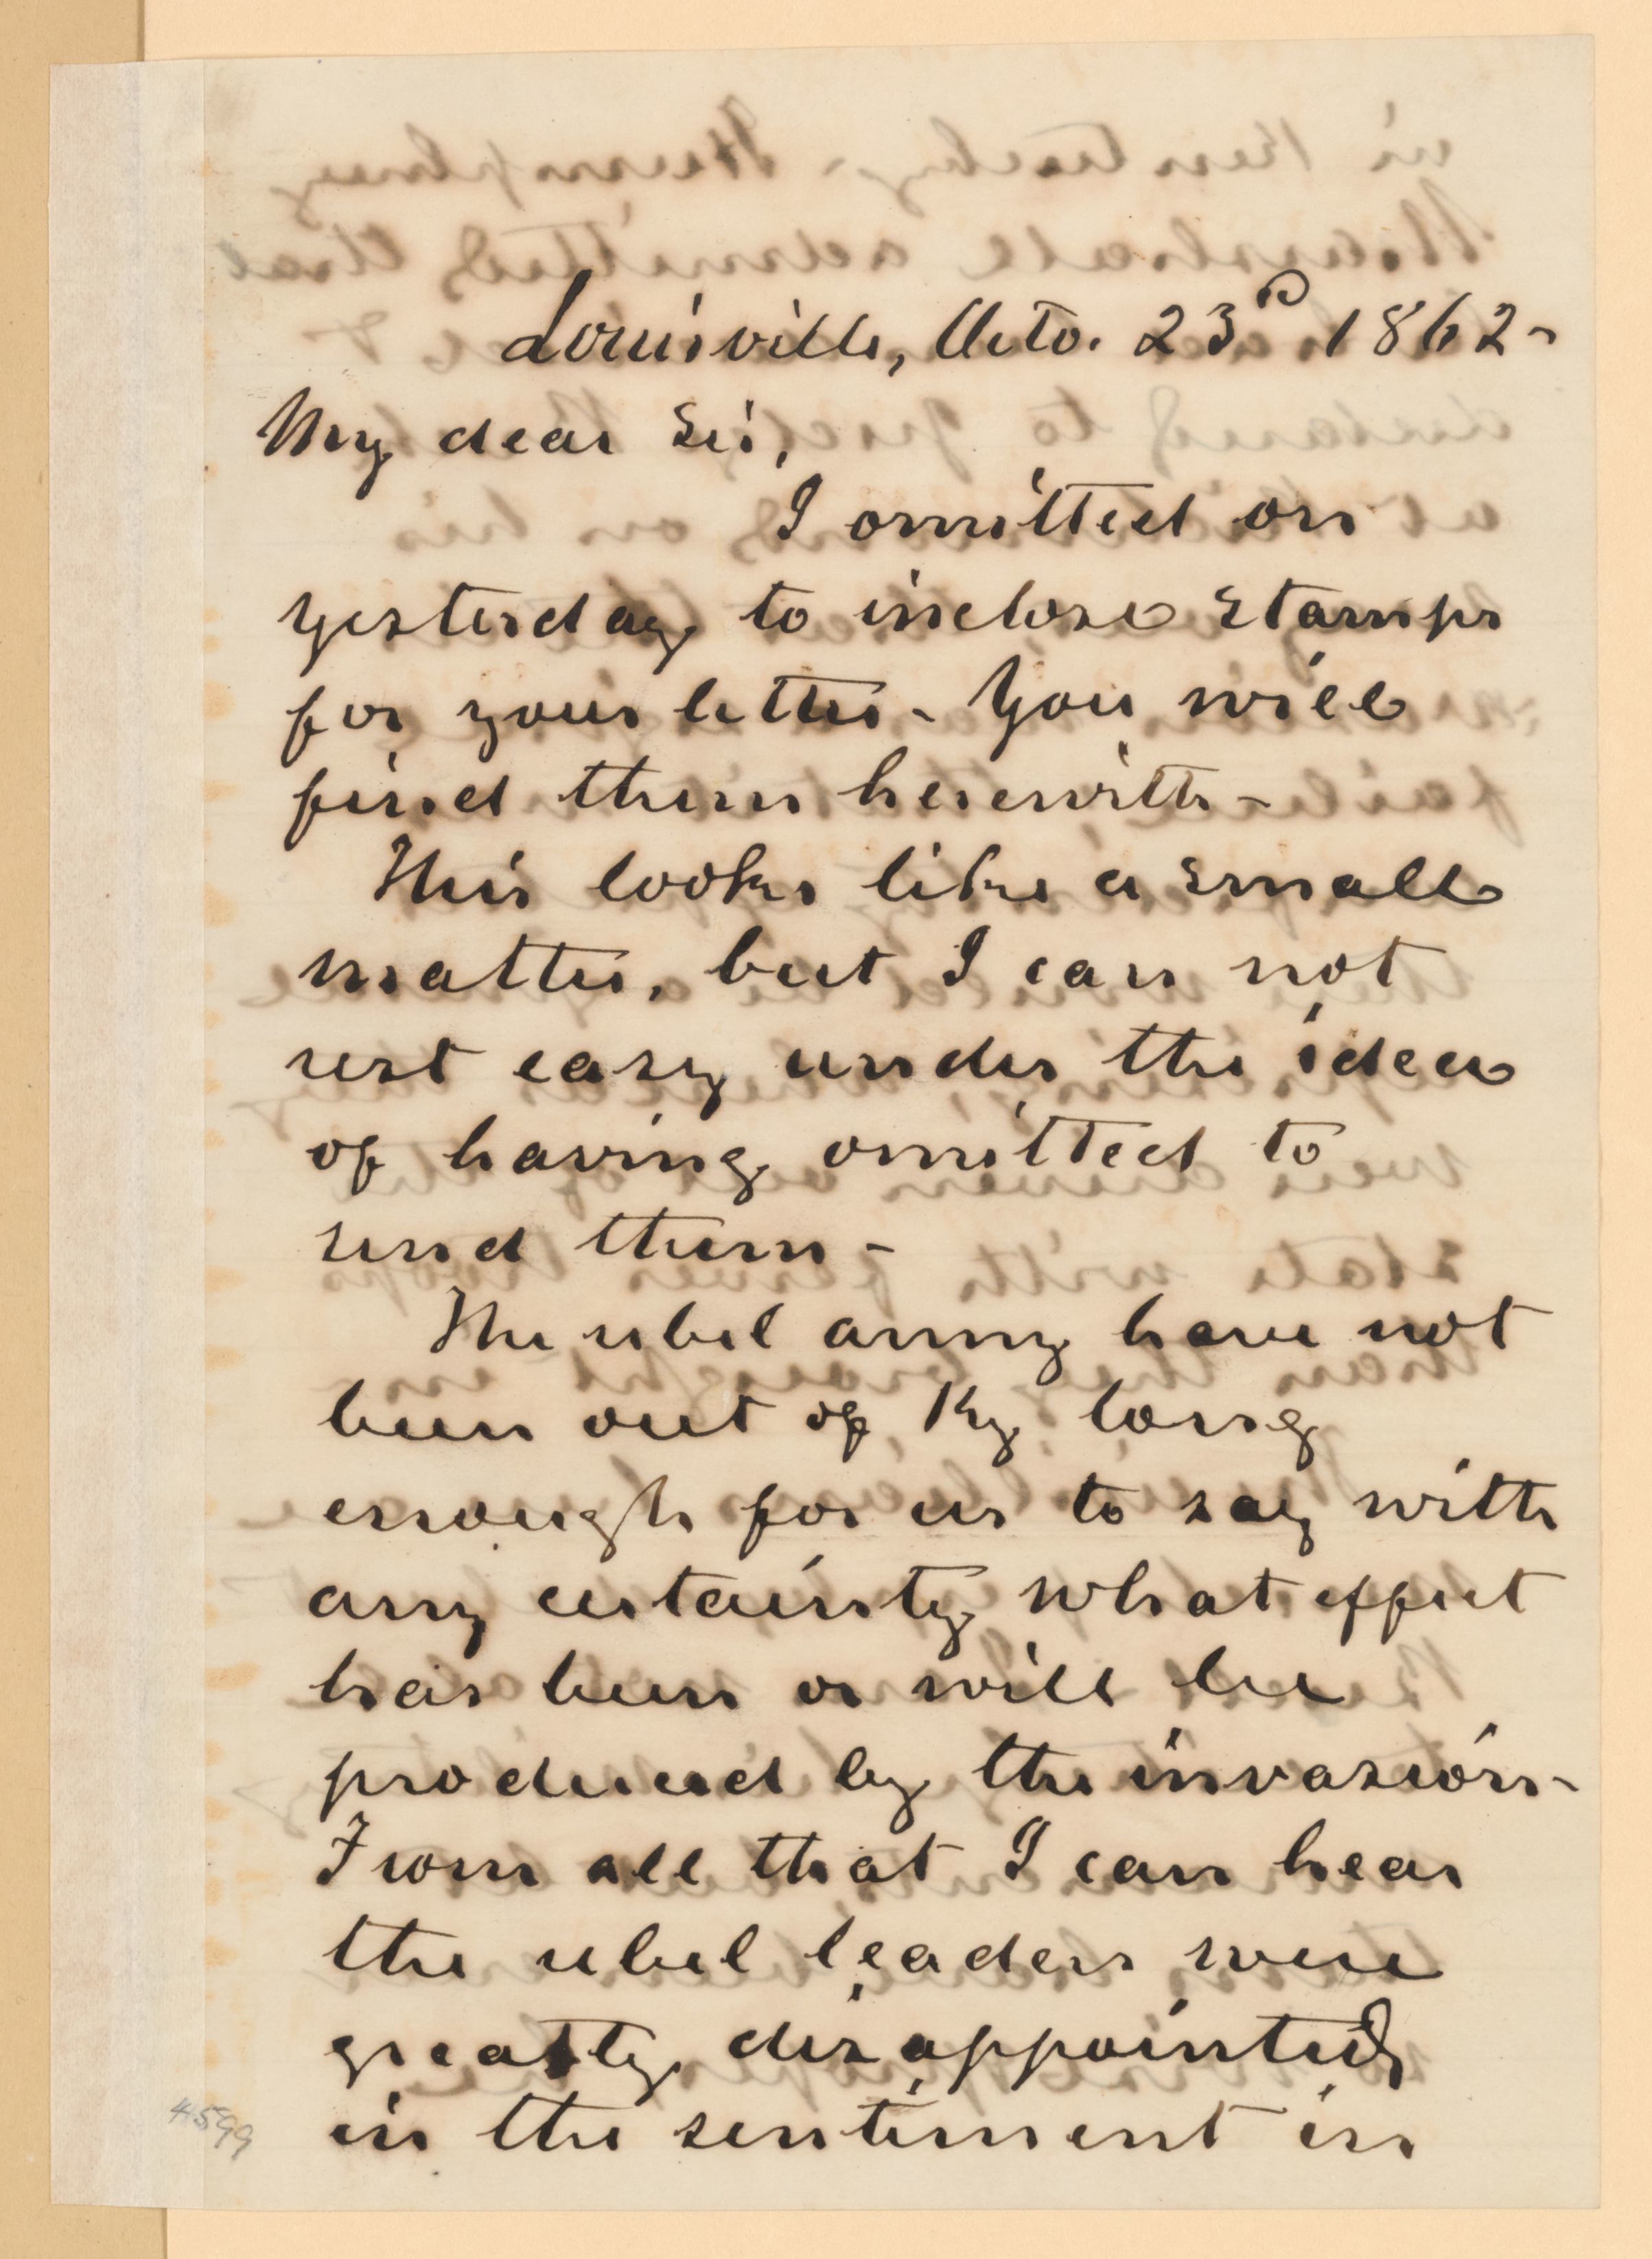 Louisville, Octo. 23d 1862-
My dear Sir,
I omitted on
yesterday to inclose stamps
for your letter - You will
find them herewith -
This looks like a small
matter, but I can not
rest easy under the idea
of having omitted to
send them -
The rebel army have not
been out of Ky long
enough for us to say with
any certainty what effect
has been or will be
produced by the invasion -
From all that I can hear
the rebel leaders were
greatly disappointed
in the sentiment in
4599